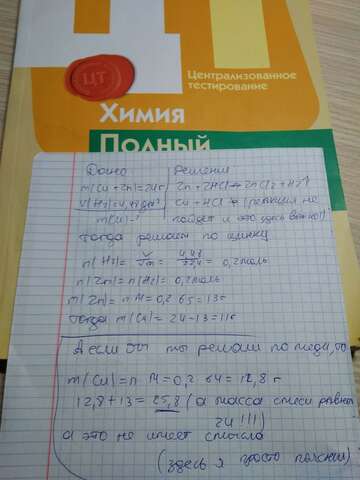 ЦТ
ЦТ
Централизованное
тестирование
Химия
Полный
Дано Решение
m(Cu+Zn)=24г Zn+2HCl→ZnCl2+H2↑
V(H2)=4,48дм³ Cu+HCl↛(реакция не
m(Cu)-? пойдет и это здесь важно!)
Тогда решаем по цинку
n(H2)=V/Vm=4,48/22,4=0,2моль
n(Zn)=n(H2)=0,2моль
m(Zn)=n·M=0,2·65=13г
Тогда m(Cu)=24-13=11г
А если бы ты решали по меди, то
m(Cu)=n·M=0,2·64=12,8г
12,8+13=25,8 (а масса смеси равна
24!!!)
а это не имеет смысла
(здесь я просто пояснил)